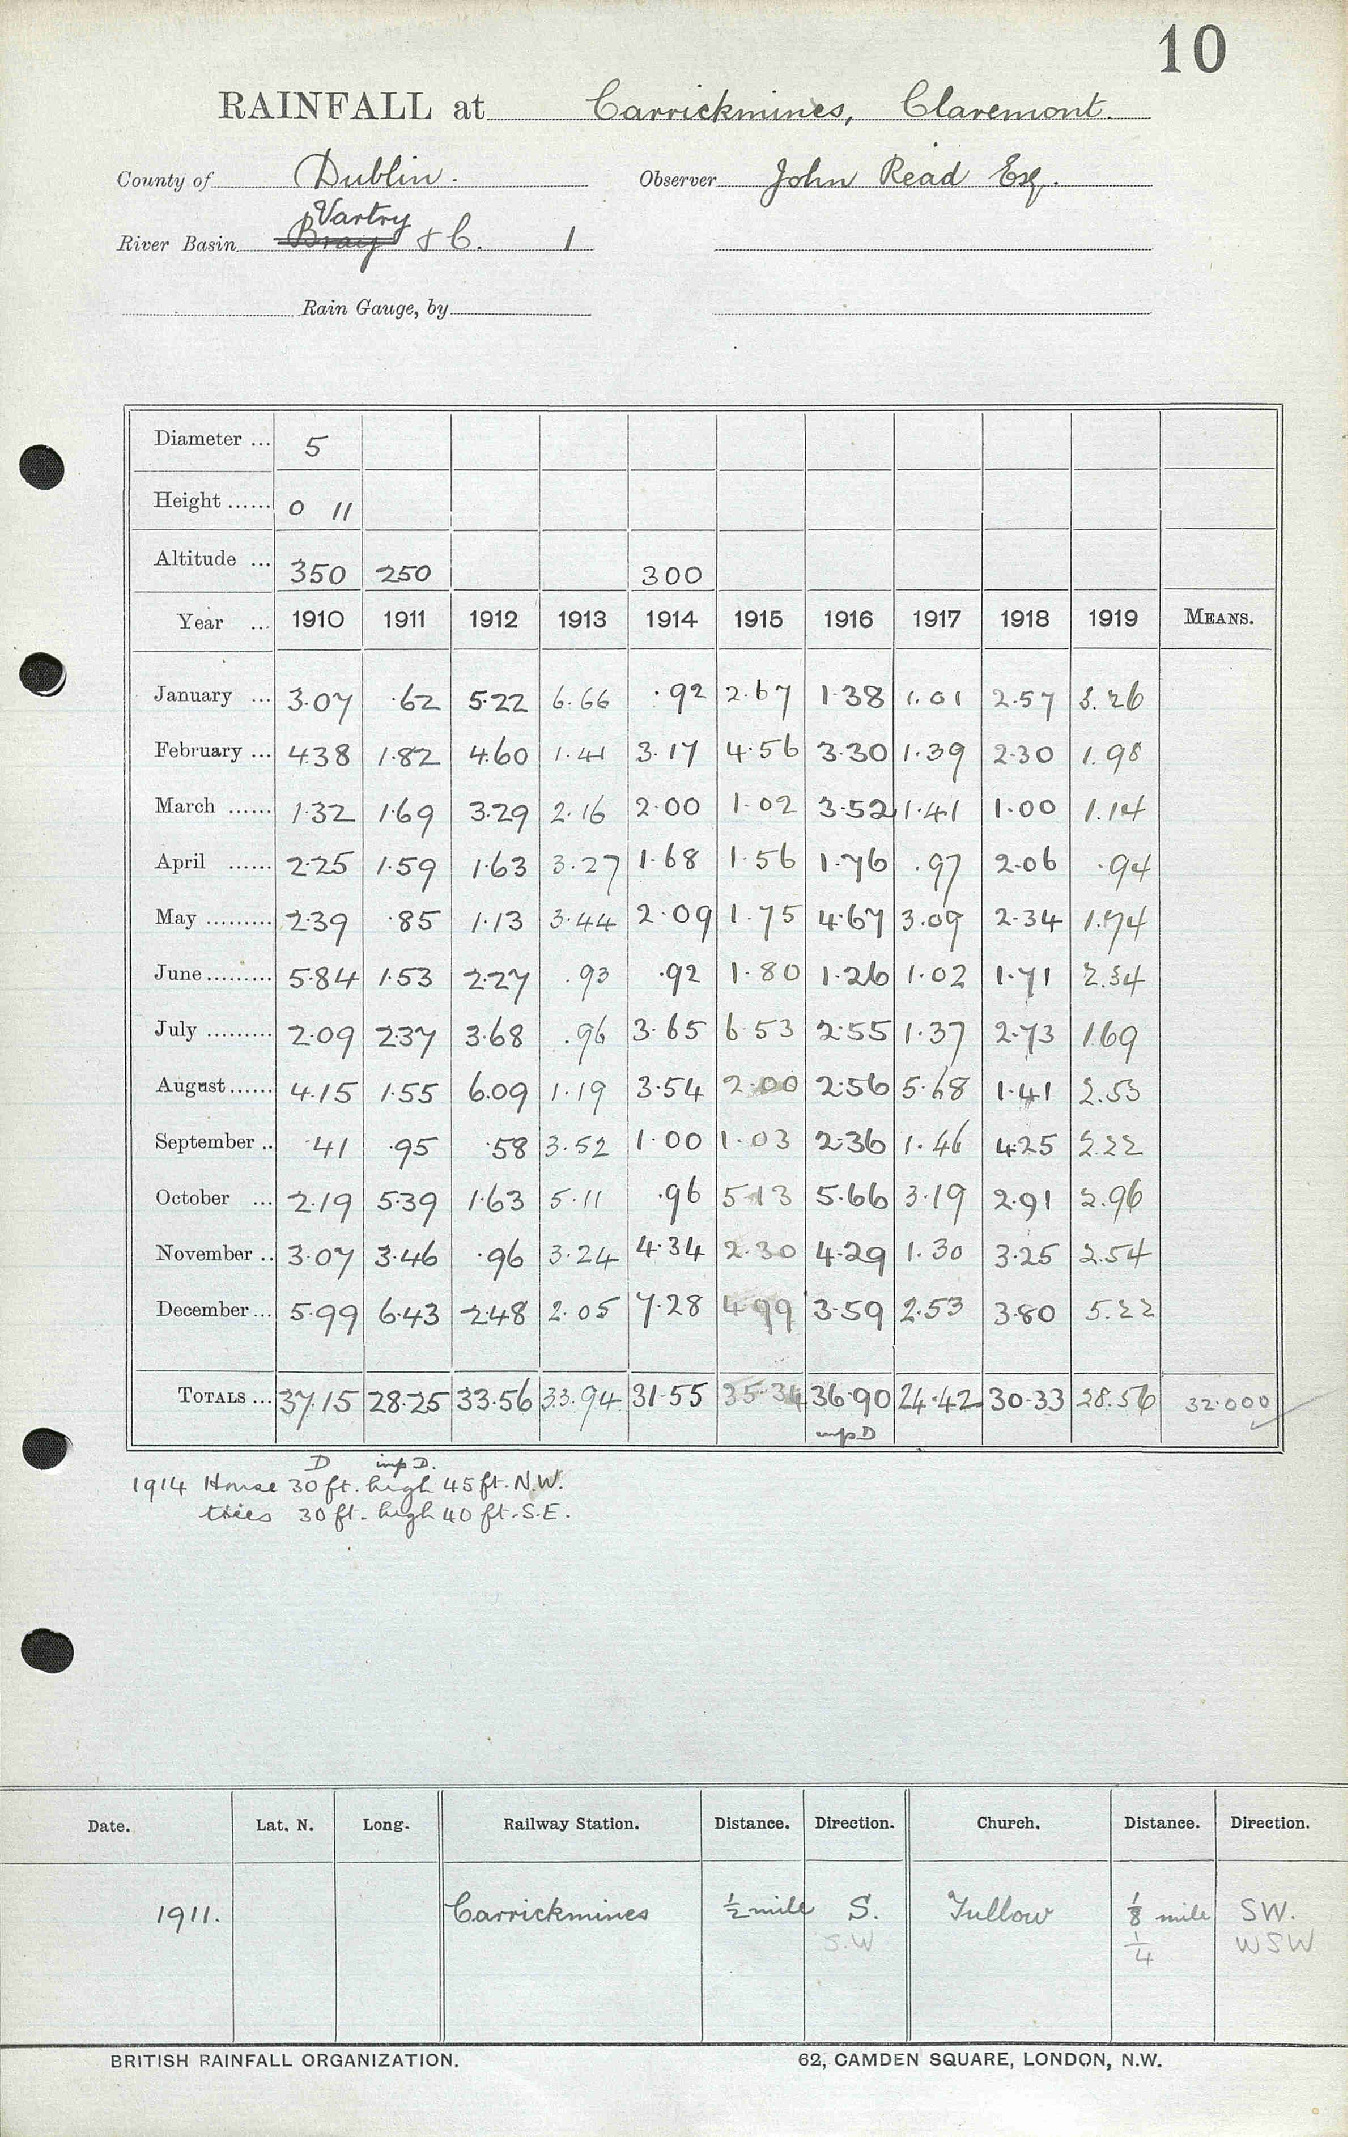 10
RAINFALL at Carrickmines, Claremont.
County of Dublin. Observer John Read Esq.
Vartry
River Basin Bray & C. 1
Rain Gauge, by
Diameter ... 5
Height ...... 0 11
Altitude ... 350 250 300
Year ... 1910 1911 1912 1913 1914 1915 1916 1917 1918 1919 MEANS.
January ... 3.07 .62 5.22 6.66 .92 2.67 1.38 1.01 2.57 3.26
February ... 4.38 1.82 4.60 1.41 3.17 4.56 3.30 1.39 2.30 1.98
March ...... 1.32 1.69 3.29 2.16 2.00 1.02 3.52 1.41 1.00 1.14
April ...... 2.25 1.59 1.63 3.27 1.68 1.56 1.76 .97 2.06 .94
May ......... 2.39 .85 1.13 3.44 2.09 1.75 4.67 3.09 2.34 1.74
June ......... 5.84 1.53 2.27 .93 .92 1.80 1.26 1.02 1.71 2.34
July ......... 2.09 2.37 3.68 .96 3.65 6.53 2.55 1.37 2.73 1.69
August ...... 4.15 1.55 6.09 1.19 3.54 2.00 2.56 5.68 1.41 2.53
September .. .41 .95 .58 3.52 1.00 1.03 2.36 1.46 4.25 2.22
October ... 2.19 5.39 1.63 5.11 .96 5.13 5.66 3.19 2.91 2.96
November .. 3.07 3.46 .96 3.24 4.34 2.30 4.29 1.30 3.25 2.54
December ... 5.99 6.43 2.48 2.05 7.28 4.99 3.59 2.53 3.80 5.22
TOTALS ... 37.15 28.25 33.56 33.94 31.55 35.34 36.90 24.42 30.33 28.56 32.000
imp D
D imp D.
1914 House 30 ft. high 45 ft. N.W.
trees 30 ft. high 40 ft. S.E.
Date. Lat. N. Long. Railway Station. Distance. Direction. Church. Distance. Direction.
1911. Carrickmines ½ mile S. Tullow ⅛ mile SW.
S.W ¼ WSW
BRITISH RAINFALL ORGANIZATION. 62, CAMDEN SQUARE, LONDON, N.W.